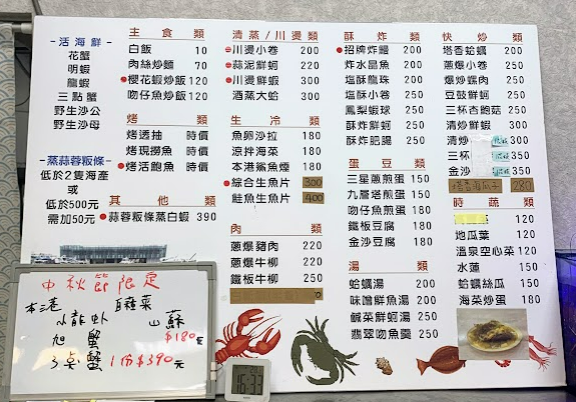 -活海鮮-
花蟹
明蝦
龍蝦
三點蟹
野生沙公
野生沙母
-蒸蒜蓉粄條-
低於2隻海產
或
低於500元
需加50元
主食類
白飯 10
肉絲炒麵 70
櫻花蝦炒飯 120
吻仔魚炒飯 120
烤類
烤透抽 時價
烤現撈魚 時價
烤活飽魚 時價
其他類
蒜蓉粄條蒸白蝦 390
清蒸/川燙類
川燙小卷 200
蒜泥鮮蚵 200
川燙鮮蝦 300
酒蒸大蛤 300
生冷類
魚卵沙拉 180
涼拌海菜 180
本港鯊魚煙 180
綜合生魚片 300
鮭魚生魚片 400
肉類
蔥爆豬肉 220
蔥爆牛柳 220
鐵板牛柳 250
酥炸類
招牌炸鰻 200
炸水晶魚 200
塩酥龍珠 200
塩酥小卷 200
鳳梨蝦球 250
酥炸鮮蚵 250
酥炸肥腸 250
蛋豆類
三星蔥煎蛋 150
九層塔煎蛋 150
吻仔魚煎蛋 180
鐵板豆腐 180
金沙豆腐 180
湯類
蛤蠣湯 200
味噌鮮魚湯 200
鹹菜鮮蚵湯 250
翡翠吻魚羹 250
快炒類
塔香蛤蠣 200
蔥爆小卷 250
爆炒螺肉 250
豆鼓鮮蚵 250
三杯杏鮑菇 250
清炒鮮蝦 300
清炒 300
三杯 350
金沙 350
280
時蔬類
120
地瓜葉 120
溫泉空心菜 120
水蓮 150
蛤蠣絲瓜 150
海菜炒蛋 180
中秋節限定
本港
小龍蝦
旭蟹
3點蟹 1份$390元
山蘇
$180元
16:33